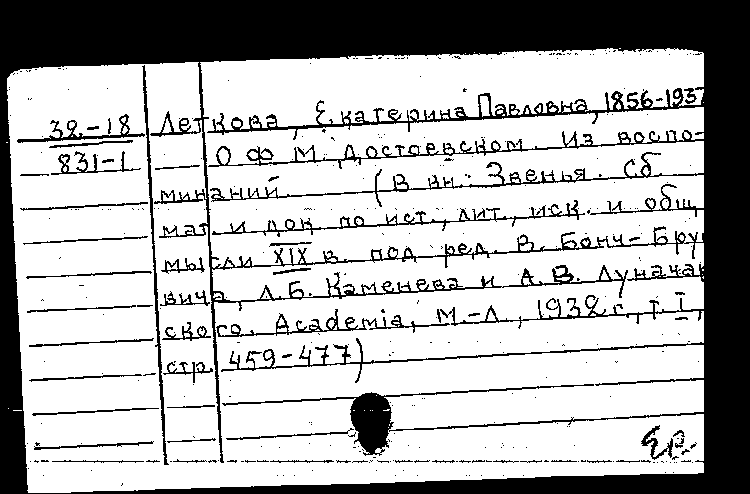 32-18 Леткова, Екатерина Павловна, 1856-1937
831-1 О Ф М. Достоевском. Из воспо-
минаний (В кн.: Звенья. Сб.
мат. и док по ист., лит., иск. и общ.
мысли XIX в. под ред. В. Бонч-Бруе
вича, Л.Б. Каменева и А.В. Луначар
ского. Academia, М.-Л., 1932 г., т. I,
стр. 459-477)